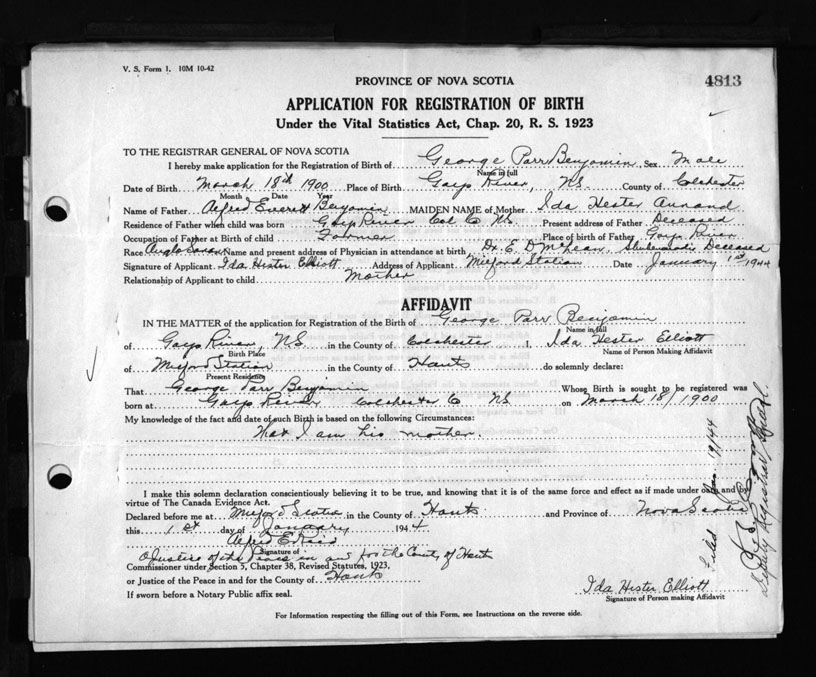 V. S. Form 1. 10M 10-42
PROVINCE OF NOVA SCOTIA
4813
APPLICATION FOR REGISTRATION OF BIRTH
Under the Vital Statistics Act, Chap. 20, R. S. 1923
TO THE REGISTRAR GENERAL OF NOVA SCOTIA
I hereby make application for the Registration of Birth of George Parr Benjamin Sex Male
Name in full
Date of Birth March 18th 1900 Place of Birth Gays River, N.S. County of Colchester
Month Date Year
Name of Father Alfred Everett Benjamin MAIDEN NAME of Mother Ida Hester Annand
Residence of Father when child was born Gays River Col Co N.S. Present address of Father Deceased
Occupation of Father at Birth of child Farmer Place of birth of Father Gays River
Race Anglo Saxon Name and present address of Physician in attendance at birth Dr. E. D McLean, Deceased
Signature of Applicant Ida Hester Elliott Address of Applicant Milford Station Date January 1st 1944
Relationship of Applicant to child Mother
AFFIDAVIT
IN THE MATTER of the application for Registration of the Birth of George Parr Benjamin
Name in full
of Gays River, N.S. in the County of Colchester I, Ida Hester Elliott
Birth Place Name of Person Making Affidavit
of Milford Station in the County of Hants do solemnly declare:
Present Residence
That George Parr Benjamin Whose Birth is sought to be registered was
born at Gays River Colchester Co N.S. on March 18/1900
My knowledge of the fact and date of such Birth is based on the following Circumstances:
That I am his mother.
I make this solemn declaration conscientiously believing it to be true, and knowing that it is of the same force and effect as if made under oath and by
virtue of The Canada Evidence Act.
Declared before me at Milford Station in the County of Hants and Province of Nova Scotia
this 1st day of January 1944
Alfred E
Signature of
A Justice of the Peace in and for the County of Hants
Commissioner under Section 5, Chapter 38, Revised Statutes, 1923,
or Justice of the Peace in and for the County of Hants
If sworn before a Notary Public affix seal.
Ida Hester Elliott
Signature of Person making Affidavit
For Information respecting the filling out of this Form, see Instructions on the reverse side.
Filed Jan 19/44
Deputy Registrar General